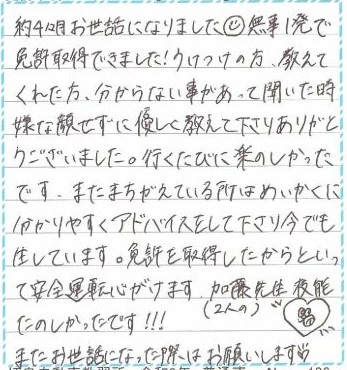 約4ヶ月お世話になりました 無事1発で
免許取得できました!うけつけの方、教えて
くれた方、分からない事があって聞いた時
嫌な顔せずに優しく教えて下さりありがと
うございました。行くたびに楽のしかった
です。またまちがえている所はめいかくに
分かりやすくアドバイスをして下さり今でも
生しています。免許を取得したからといっ
て安全運転心がけます。加藤先生 技能
(2人の)
たのしかったです!!!
またお世話になった際はお願いします